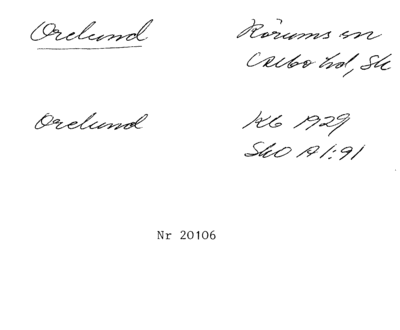 Orelund
Rörums sn
Albo hd, Sk
Orelund
Kb 1929
SkO A1:91
Nr 20106